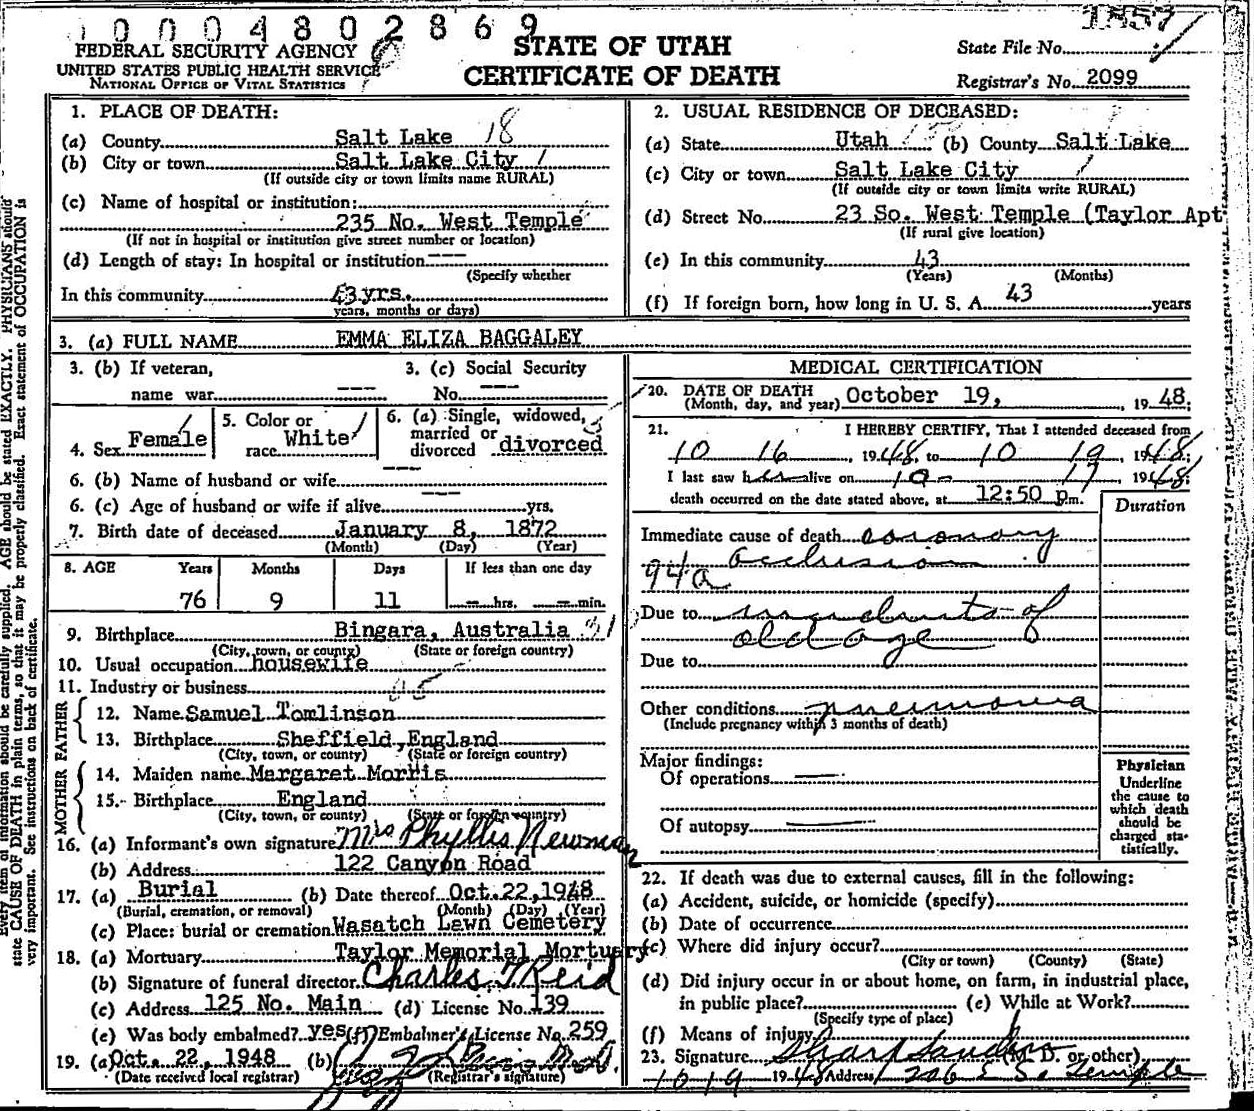 0004802869
1857
FEDERAL SECURITY AGENCY
UNITED STATES PUBLIC HEALTH SERVICE
NATIONAL OFFICE OF VITAL STATISTICS
STATE OF UTAH
CERTIFICATE OF DEATH
State File No.
Registrar's No. 2099
Every item of information should be carefully supplied. AGE should be stated EXACTLY. PHYSICIANS should
state CAUSE OF DEATH in plain terms, so that it may be properly classified. Exact statement of OCCUPATION is
very important. See instructions on back of certificate.
1. PLACE OF DEATH:
(a) County Salt Lake 18
(b) City or town Salt Lake City 1
(If outside city or town limits name RURAL)
(c) Name of hospital or institution:
235 No. West Temple
(If not in hospital or institution give street number or location)
(d) Length of stay: In hospital or institution ---
(Specify whether
In this community 43 yrs.
years, months or days)
2. USUAL RESIDENCE OF DECEASED:
(a) State Utah (b) County Salt Lake
(c) City or town Salt Lake City 1
(If outside city or town limits write RURAL)
(d) Street No. 23 So. West Temple (Taylor Apt
(If rural give location)
(e) In this community 43
(Years) (Months)
(f) If foreign born, how long in U. S. A. 43 years
3. (a) FULL NAME EMMA ELIZA BAGGALEY
3. (b) If veteran,
name war ---
3. (c) Social Security
No. ---
4. Sex Female
5. Color or
race White
6. (a) Single, widowed,
married or
divorced divorced
6. (b) Name of husband or wife ---
6. (c) Age of husband or wife if alive --- yrs.
7. Birth date of deceased January 8, 1872
(Month) (Day) (Year)
8. AGE Years Months Days If less than one day
76 9 11 — hrs. — min.
9. Birthplace Bingara, Australia
(City, town, or county) (State or foreign country)
10. Usual occupation housewife
11. Industry or business
FATHER
12. Name Samuel Tomlinson
13. Birthplace Sheffield, England
(City, town, or county) (State or foreign country)
MOTHER
14. Maiden name Margaret Morris
15. Birthplace England
(City, town, or county) (State or foreign country)
16. (a) Informant's own signature Mrs Phyllis Newman
(b) Address 122 Canyon Road
17. (a) Burial (b) Date thereof Oct. 22, 1948
(Burial, cremation, or removal) (Month) (Day) (Year)
(c) Place: burial or cremation Wasatch Lawn Cemetery
18. (a) Mortuary Taylor Memorial Mortuary
(b) Signature of funeral director Charles T Reid
(c) Address 125 No. Main (d) License No. 139
(e) Was body embalmed? yes (f) Embalmer's License No. 259
19. (a) Oct. 22, 1948 (b)
(Date received local registrar) (Registrar's signature)
MEDICAL CERTIFICATION
20. DATE OF DEATH
(Month, day, and year) October 19, 1948;
21. I HEREBY CERTIFY, That I attended deceased from
10 16, 1948, to 10 19, 1948;
I last saw her alive on 10 - 17, 1948;
death occurred on the date stated above, at 12:50 pm.
Duration
Immediate cause of death coronary
occlusion
94a
Due to
old age
Due to
Other conditions pneumonia
(Include pregnancy within 3 months of death)
Major findings:
Of operations
Of autopsy
Physician
Underline
the cause to
which death
should be
charged sta-
tistically.
22. If death was due to external causes, fill in the following:
(a) Accident, suicide, or homicide (specify)
(b) Date of occurrence
(c) Where did injury occur?
(City or town) (County) (State)
(d) Did injury occur in or about home, on farm, in industrial place,
in public place? (e) While at Work?
(Specify type of place)
(f) Means of injury
23. Signature (M. D. or other)
10 19 1948 Address 1206 E So. Temple